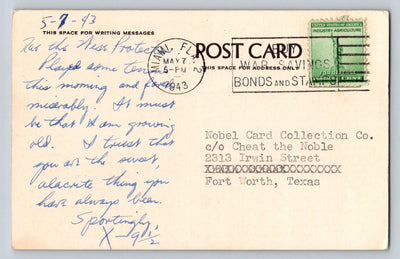 5-7-43
THIS SPACE FOR WRITING MESSAGES
POST CARD
THIS SPACE FOR ADDRESS ONLY
MIAMI, FLA.
MAY 7
5-PM
1943
BUY
WAR SAVINGS
BONDS AND STAMPS
INDUSTRY AGRICULTURE
CENT
the Miss Protect
Played some tennis
this morning and
miserably. It must
be that I am growing
old. I trust that
you are the sweet,
alacrite thing you
have always been.
Sportingly,
X-9½
Nobel Card Collection Co.
c/o Cheat the Noble
2313 Irwin Street
Fort Worth, Texas